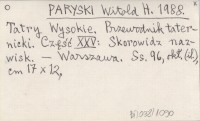 PARYSKI Witold H. 1988.
Tatry Wysokie. Przewodnik tater-
nicki. Część XXV: Skorowidz naz-
wisk. — Warszawa. Ss. 96,
cm 17 x 12,